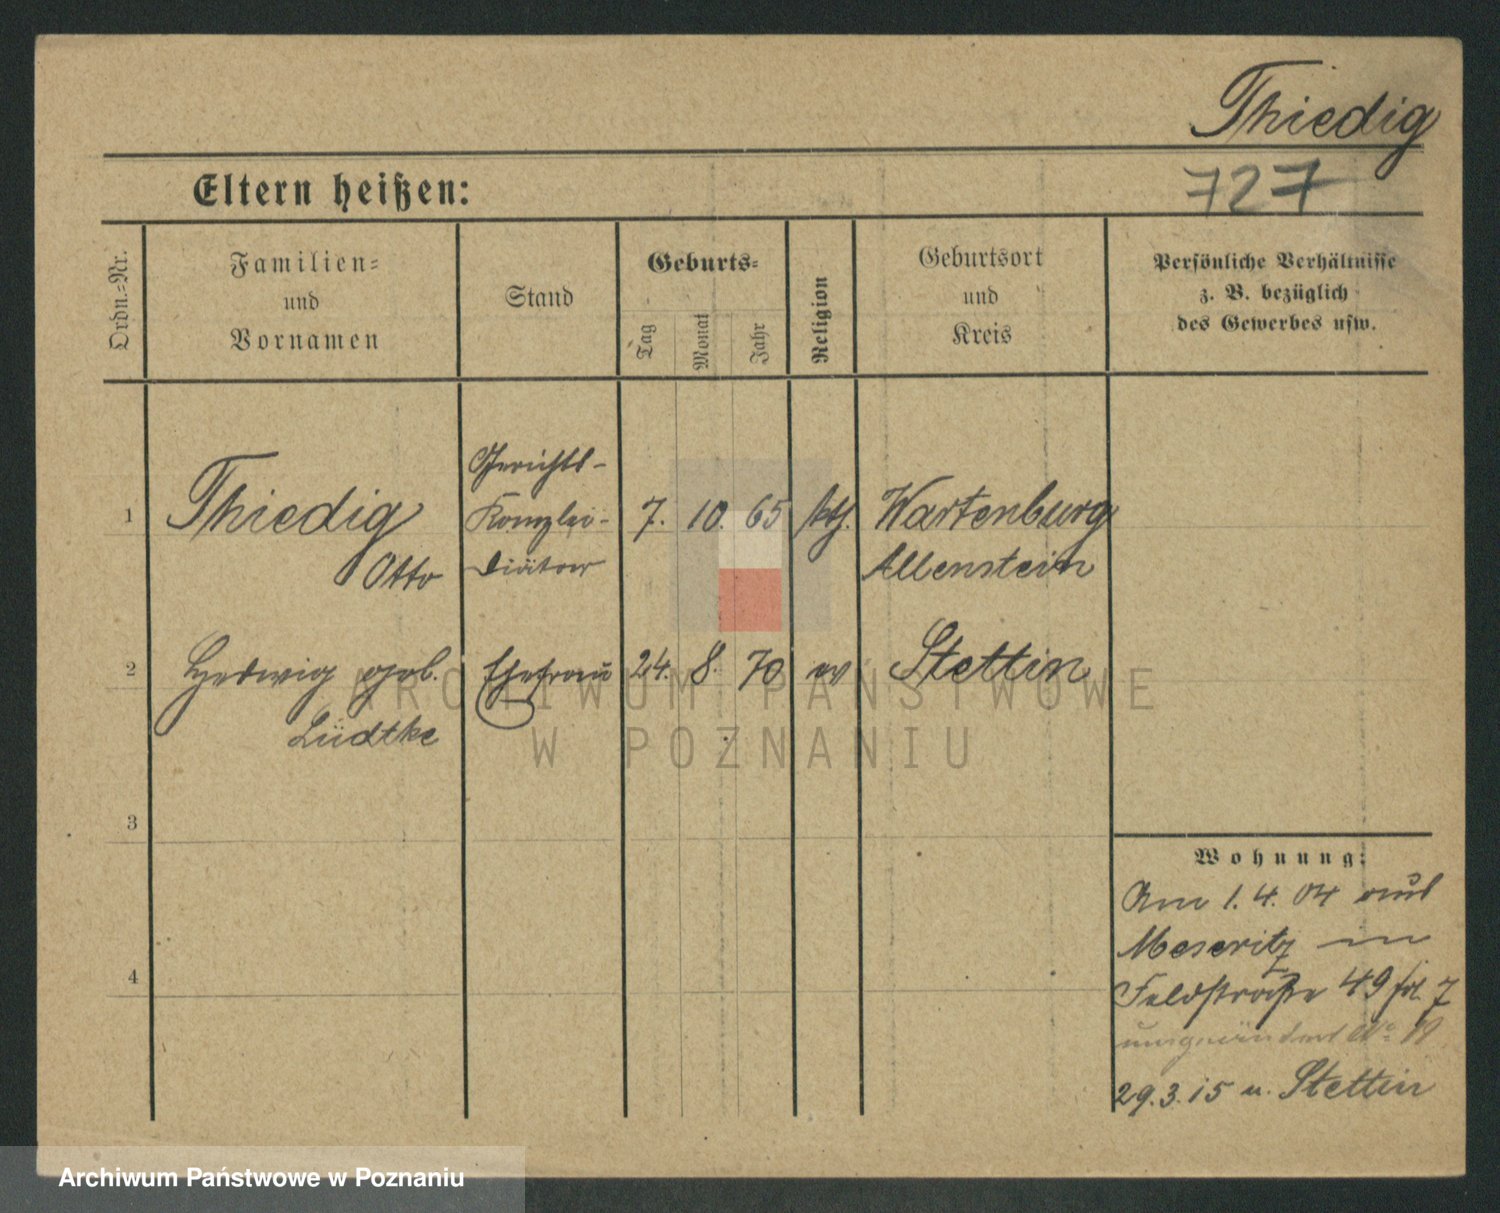 Thiedig
727
Eltern heißen:
Ordn.=Nr.
Familien=
und
Vornamen
Stand
Geburts=
Tag
Monat
Jahr
Religion
Geburtsort
und
Kreis
Persönliche Verhältnisse
z. B. bezüglich
des Gewerbes usw.
1
Thiedig
Otto
Gerichts-
Kanzlei-
Diätar
7. 10. 65
kth.
Wartenburg
Allenstein
2
Hedwig geb.
Lüdtke
Ehefrau
24. 8. 70
ev
Stettin
3
4
Wohnung:
Am 1.4.04 aus
Meseritz in
Feldstraße 49
29.3.15 n. Stettin
ARCHIWUM PAŃSTWOWE
W POZNANIU
Archiwum Państwowe w Poznaniu